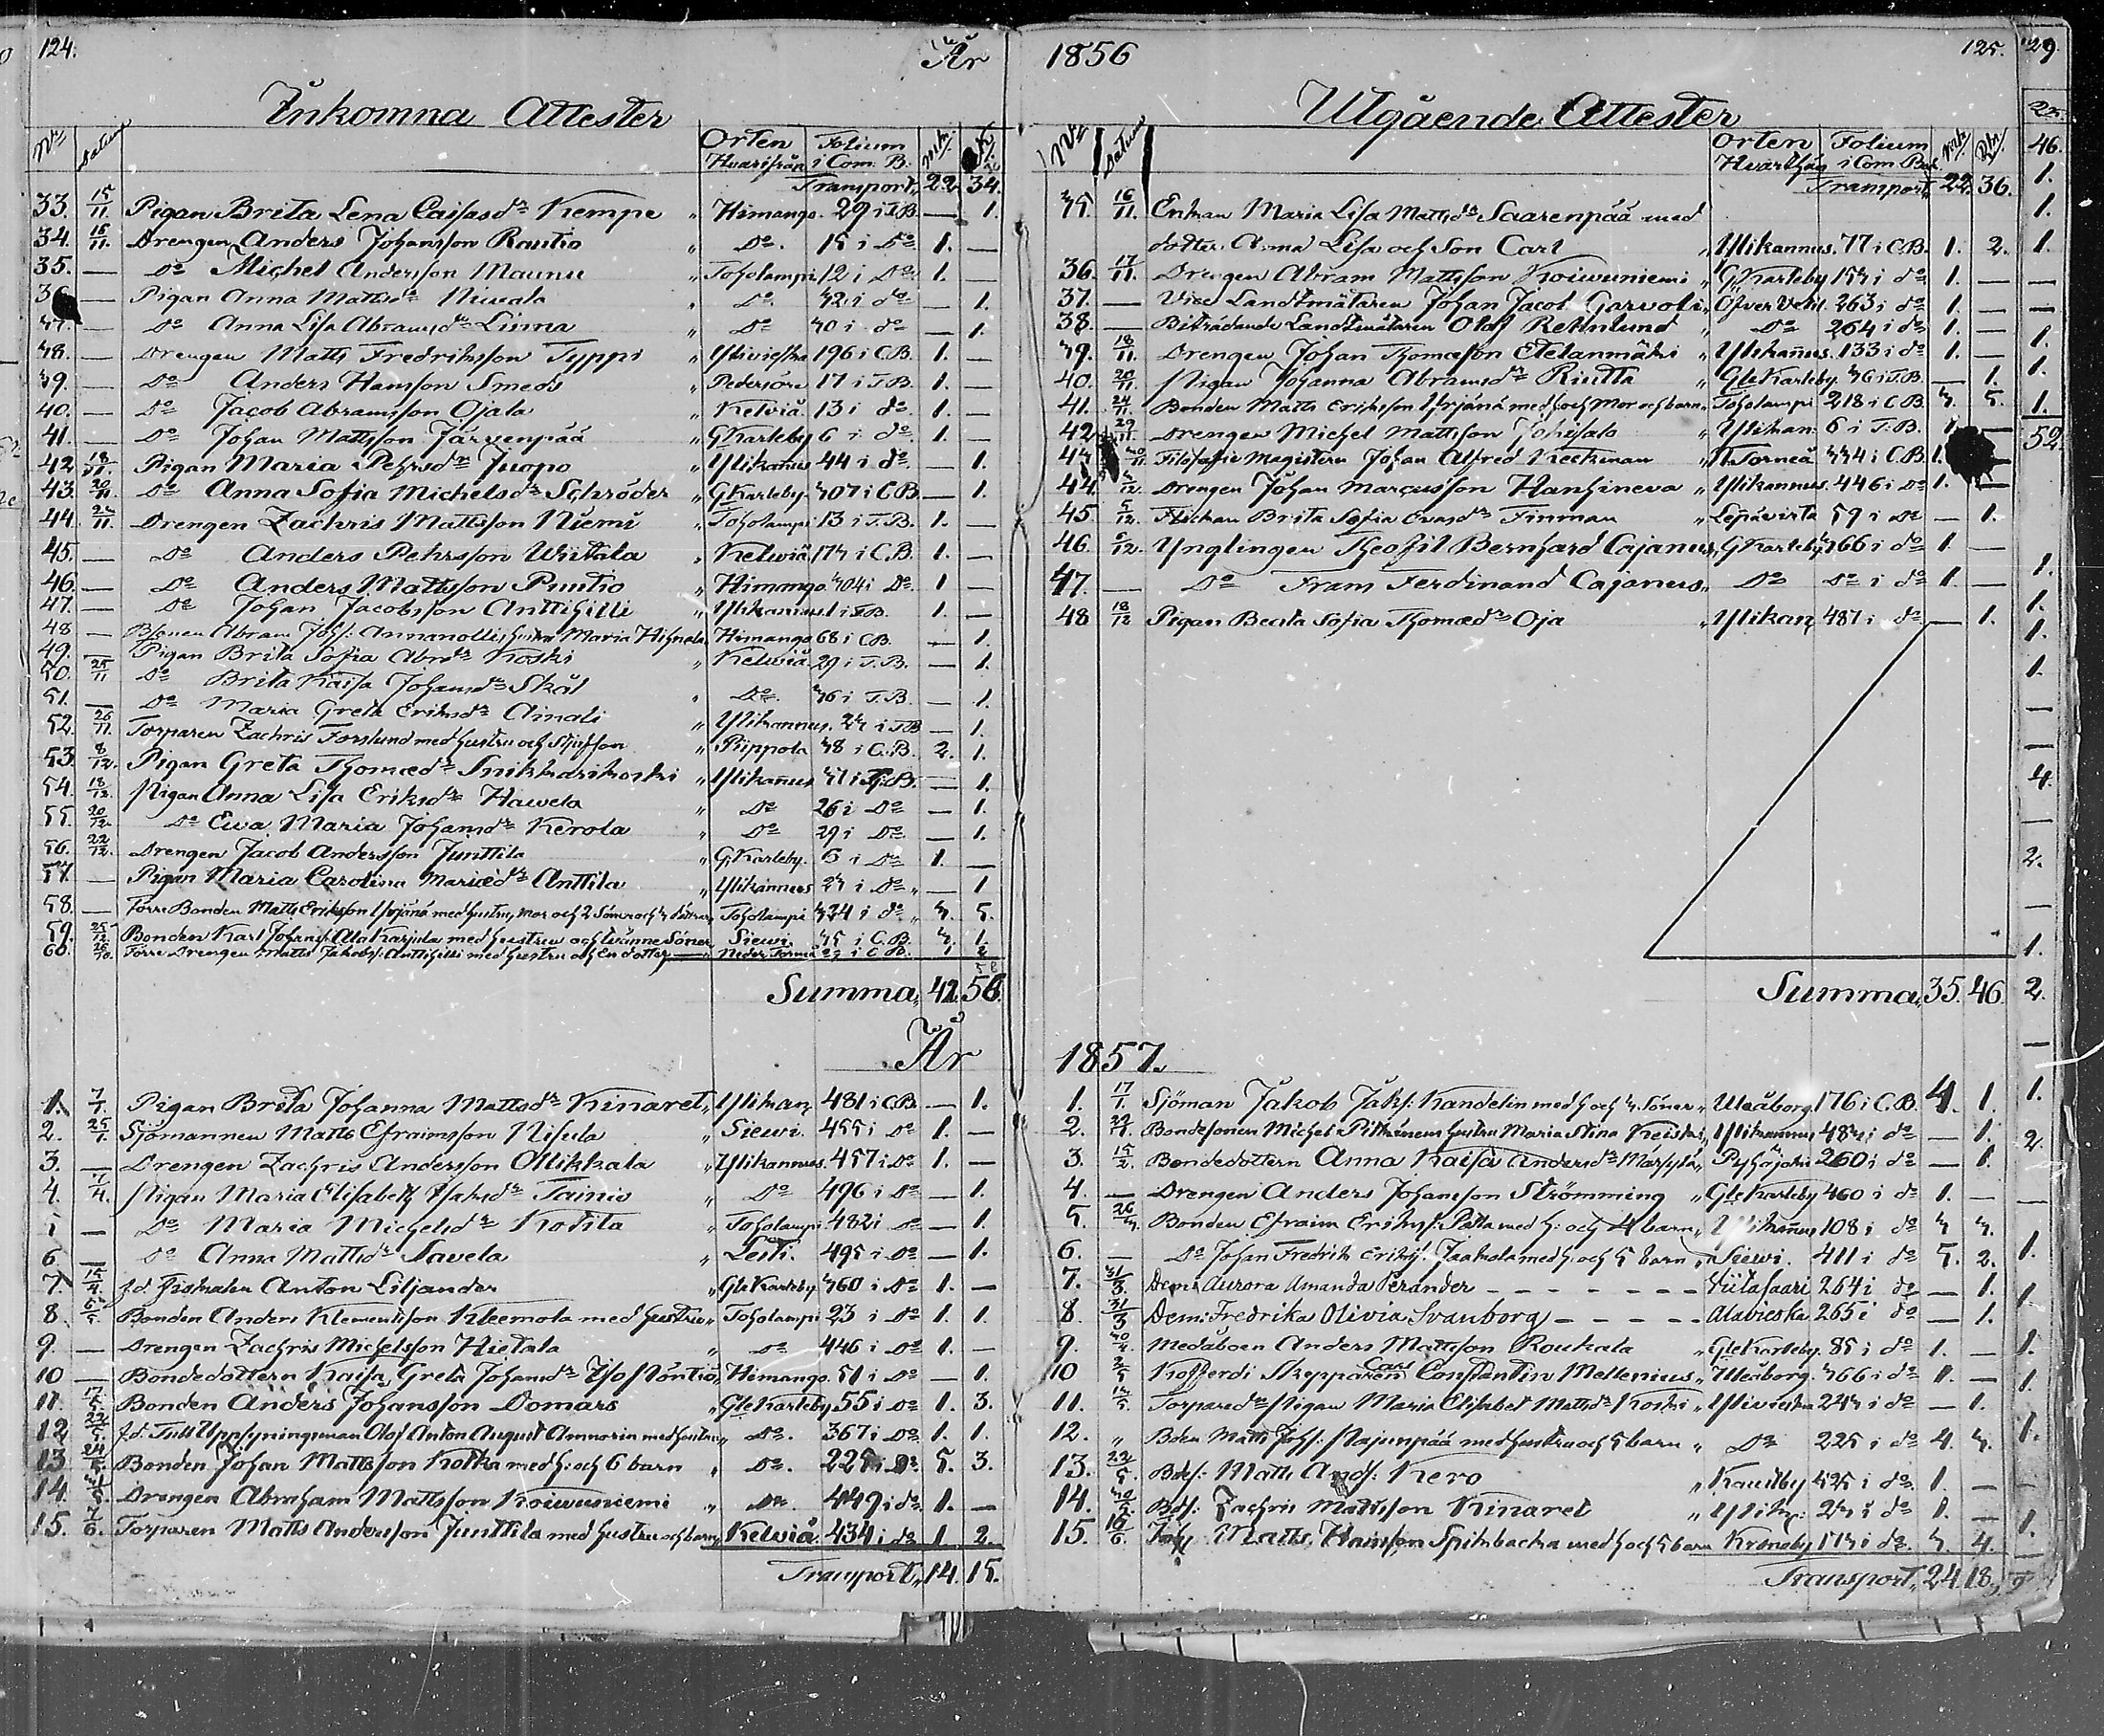 124.
År
Inkomna Attester
No Datum Orten Hvarifrån Folium i Com. B. Mk. Qk.
Transport, 22. 34.
33. 15/11. Pigan Brita Lena Caisasdr Kempe " Himango. 29 i T.B. — 1.
34. 15/11. Drengen Anders Johansson Rautio " Do. 15 i Do 1. —
35. — Do Michel Andersson Maunu " Toholampi 12 i Do 1. —
36. — Pigan Anna Mattsdr Niwala " Do. 32 i do — 1.
37. — Do Anna Lisa Abramsdr Linna " Do 30 i do — 1.
38. — Drengen Matts Fredriksson Typpi " Ylivieska 196 i C.B. 1. —
39. — Do Anders Hansson Smeds " Pedersöre 17 i T.B. 1. —
40. — Do Jacob Abramsson Ojala " Kelviå 13 i do 1. —
41. — Do Johan Mattsson Järvenpää " GKarleby 6 i do. 1. —
42. 18/11. Pigan Maria Pehrsdr Juopo " Ylikañus 44 i do. — 1.
43. 20/11. Do Anna Sofia Michelsdr Schröder " GKarleby 307 i C.B. — 1.
44. 22/11. Drengen Zachris Mattsson Niemi " Toholampi 13 i T.B. 1. —
45. — Do Anders Pehrsson Wiitala " Kelwiå 173 i C.B. 1. —
46. — Do Anders Mattsson Puutio " Himango. 304 i Do. 1 —
47. — Do Johan Jacobsson Anttihilli " Ylikannus 1 i T.B. 1. —
48 — Bsonen Abram Johs: Annanollis hustru Maria Hihnala Himango 68 i C.B. — 1.
49. — Pigan Brita Sofia Abrdr Koski " Kelwiå 29 i T.B. — 1.
50. 25/11 Do Brita Kaisa Johansdr Skål " Do. 36 i T.B. — 1.
51. — Do Maria Greta Eriksdr Ainali " Ylikannus. 23 i T.B — 1.
52. 26/11. Torparen Zachris Forslund med hustru och Stjufson " Piippola 38 i C.B. 2. 1.
53. 8/12. Pigan Greta Thomædr Snikkarikoski " Ylikañus 31 i T.B. — 1.
54. 18/12. Pigan Anna Lisa Eriksdr Hawela " Do 26 i Do — 1.
55. 20/12. Do Ewa Maria Johansdr Kerola " Do 29 i Do. — 1.
56. 22/12. Drengen Jacob Andersson Junttila " GKarleby. 6 i Do 1. —
57. — Pigan Maria Carolina Mariædr Anttila " Ylikannus 23 i Do " — 1
58. — Förre Bonden Matts Eriksson Yrjänä med hustru, Mor och 2 Söner och 3 döttrar, Toholampi 324 i do. " 3. 5.
59. 25/12. Bonden Karl Johans: Ala Karjula med hustru och tvänne Söner, Siewi. 35 i C.B. 3. 1.
60. Förre Drengen Matts Jakobs: Anttihilli med hustru och En dotter — Neder Torneå 23 i C.B. 1 2
Summa, 42. 58.
År
1. 7/1. Pigan Brita Johanna Mattsdr Kinaret, Ylikan 481 i C.B — 1.
2. 25/1. Sjömannen Matts Efraimsson Nisula " Siewi. 455 i Do 1. —
3. — Drengen Zachris Andersson Ollikkala " Ylikannus. 457 i Do 1. —
4. 7/4. Pigan Maria Elisabeth Isaksdr Tainio " Do 496 i Do — 1.
5 — Do Maria Michelsdr Kotila " Toholampi 482 i Do — 1.
6. — Do Anna Mattsdr Savela " Lesti. 495 i Do — 1.
7. 15/4. f.d. Fiskalen Anton Liljander " Gle Karleby 360 i Do 1. —
8. 6/5. Bonden Anders Klementsson Kleemola med hustru " Toholampi 23 i Do 1. 1.
9. — Drengen Zachris Michelsson Hietala " Do 446 i Do 1. —
10 — Bondedottern Kaisa Greta Johansdr Iso Pöntiö, Himango. 51 i Do — 1.
11. 17/5. Bonden Anders Johansson Domars " Gle Karleby 55 i Do 1. 3.
12. 22/5. f.d. Tull Uppsyningsman Olof Anton August Amnorin med hustru " Do. 367 i Do 1. 1.
13. 24/5. Bonden Johan Mattsson Kotka med h: och 6 barn " Do. 225 i Do. 5. 3.
14. 31/5. Drengen Abraham Mattsson Koiwuniemi " Do. 449 i do 1. —
15. 7/6. Torparen Matts Andersson Junttila med hustru och barn, Kelviå. 434 i do. 1. 2.
Transport, 14. 15.
1856
125.
Utgående Attester
No Datum Orten Hvarthän Folium i Com. Bok Transport, 22. 36.
35. 16/11. Enkan Maria Lisa Mattsdr Saarenpää med
dotter Anna Lisa och Son Carl " Ylikannus. 77 i C.B. 1. 2.
36. 17/11. Drengen Abram Mattsson Koiwuniemi " G Karleby 153 i do 1. —
37. — Vice Landtmätaren Johan Jacob Garvoli " Öfver Vetil. 263 i do 1. —
38. — Biträdande Landtmätaren Olof Rehnlund " Do 264 i do 1. —
39. 18/11. Drengen Johan Thomæson Etelanmäki " Ylikañus. 133 i do 1. —
40. 20/11. Pigan Johanna Abramsdr Riutta " Gle Karleby. 36 i T.B. — 1.
41. 24/11. Bonden Matts Eriksson Yrjänä med h och Mor och barn " Toholampi 218 i C.B. 3. 5.
42. 29/11. Drengen Michel Mattsson Johisalo " Ylikan: 6 i T.B. 1. —
43 30/11. Filosofie Magistern Johan Alfred Keckman " N.Torneå 334 i C.B. 1.
44. 3/12. Drengen Johan Marcusson Hanhineva " Ylikannus. 446 i Do 1. —
45. 5/12. Flickan Brita Sofia Evasdr Finman " Lepävirta 59 i Do — 1.
46. 6/12. Ynglingen Theofil Bernhard Cajanus, G Karleby 166 i do 1 —
47. — Do Frans Ferdinand Cajanus, Do Do i do 1. —
48 18/12 Pigan Beata Sofia Thomædr Oja " Ylikan 487 i do — 1.
Summa, 35. 46.
1857.
1. 17/1. Sjöman Jakob Jaks: Kandelin med h och 3 Söner " Uleåborg 176 i C.B. 4. 1.
2. Bondesonen Michel Pitkänens hustru Maria Stina Keiski, Ylikannus 483 i do — 1.
3. 15/2. Bondedottern Anna Kaisa Andersdr Märsylä, Pyhäjoki 260 i do — 1.
4. — Drengen Anders Johansson Strömming " Gle Karleby 460 i do 1. —
5. 26/3. Bonden Efraim Eriks: Palta med h: och 4 barn, Ylikañus 108 i do 3 3.
6. — Do Johan Fredrik Eriks: Jaakola med h. och 5 barn, Siewi. 411 i do 5. 2.
7. 31/3. Dem: Aurora Amanda Perander — Viitasaari 264 i do — 1.
8. 31/3 Dem: Fredrika Olivia Svanborg — Alavieska 265 i do — 1.
9. Medåboen Anders Mattsson Roukala " Gle Karleby. 85 i do 1. —
10 Kofferdi Skepparen Carl Constantin Mellenius " Uleåborg. 366 i do 1. —
11. Torparedr Pigan Maria Elisabet Mattsdr Koski " Ylivieska 243 i do — 1.
12. " Bden Matts Johs: Pajunpää med hustru och 5 barn " Do 225 i do 4. 3.
13. 22/5. Bdes: Matts Ands: Kero " Kaustby 425 i do. 1. —
14. 30/5. Bds: Zachris Mattsson Kinaret " Ylik: 23 i do 1. —
15. 16/6. Matts Hansson Spikbacka med h och 5 barn Kronoby 173 i do. 3. 4.
Transport, 24. 18.
129.
25.
46.
1.
1.
1.
1.
1.
1.
52.
1.
1.
1.
1.
—
—
4.
—
2.
—
1.
2.
—
1.
2.
—
1.
1.
1.
1.
1.
1.